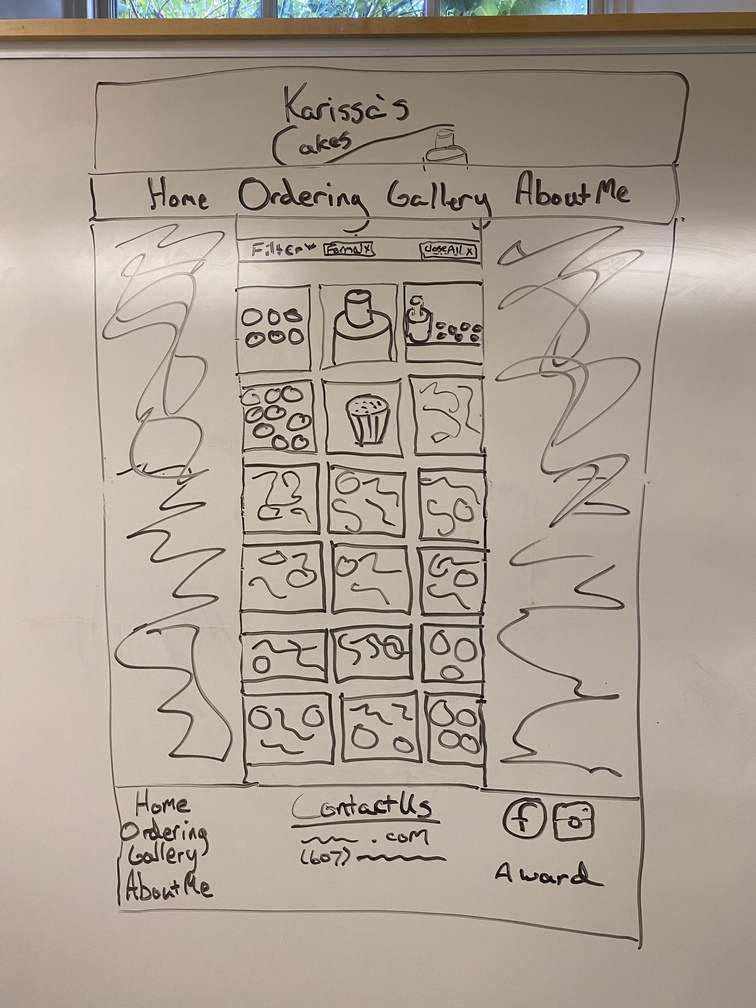 Karissa's
Cakes
Home Ordering Gallery About Me
Filter Formal x Close All x
Home
Ordering
Gallery
About Me
Contact Us
.com
(607)
f
Award